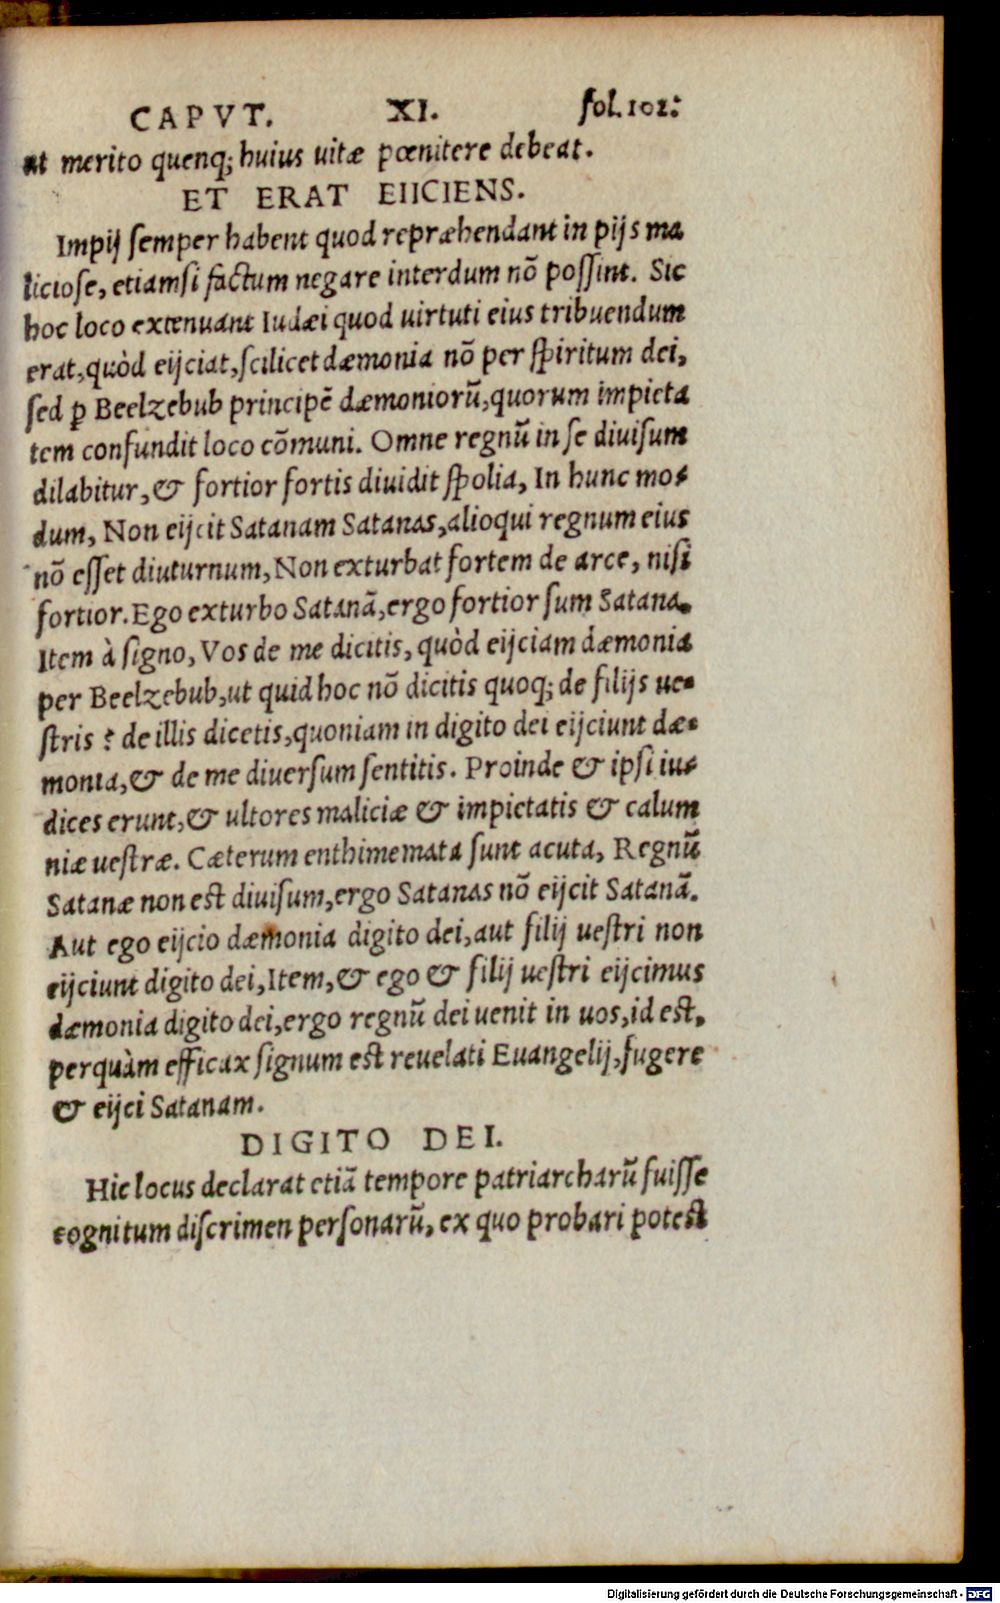 CAPVT. XI. fol. 102.
ut merito quenq; huius uitæ pœnitere debeat.
ET ERAT EIICIENS.
Impij semper habent quod repræhendant in pijs ma
liciose, etiamsi factum negare interdum nõ possint. Sic
hoc loco extenuant Iudæi quod uirtuti eius tribuendum
erat, quòd eijciat, scilicet dæmonia nõ per spiritum dei,
sed ꝑ Beelzebub principẽ dæmoniorũ, quorum impieta
tem confundit loco cõmuni. Omne regnũ in se diuisum
dilabitur, & fortior fortis diuidit spolia, In hunc mo-
dum, Non eijcit Satanam Satanas, alioqui regnum eius
nõ esset diuturnum, Non exturbat fortem de arce, nisi
fortior. Ego exturbo Satanã, ergo fortior sum Satana.
Item à signo, Vos de me dicitis, quòd eijciam dæmonia
per Beelzebub, ut quid hoc nõ dicitis quoq; de filijs ue-
stris ? de illis dicetis, quoniam in digito dei eijciunt dæ-
monia, & de me diuersum sentitis. Proinde & ipsi iu-
dices erunt, & ultores maliciæ & impietatis & calum
niæ uestræ. Cæterum enthimemata sunt acuta, Regnũ
Satanæ non est diuisum, ergo Satanas nõ eijcit Satanã.
Aut ego eijcio dæmonia digito dei, aut filij uestri non
eijciunt digito dei, Item, & ego & filij uestri eijcimus
dæmonia digito dei, ergo regnũ dei uenit in uos, id est,
perquàm efficax signum est reuelati Euangelij, fugere
& eijci Satanam.
DIGITO DEI.
Hic locus declarat etiã tempore patriarcharũ fuisse
cognitum discrimen personarũ, ex quo probari potest
Digitalisierung gefördert durch die Deutsche Forschungsgemeinschaft - DFG